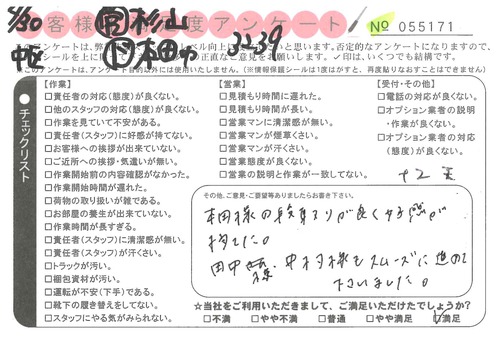 5/30 営 杉山
お客様満足度アンケート
No 055171
中区 作 本田中 32-39
※このアンケートは、アンケート目的以外には使用いたしません。(※情報保護シールは1度はがすと、再度貼りなおすことはできません)
チェックリスト
【作業】
□責任者の対応(態度)が良くない。
□他のスタッフの対応(態度)が良くない。
□作業を見ていて不安がある。
□責任者(スタッフ)に好感が持てない。
□お客様への挨拶が出来ていない。
□ご近所への挨拶・気遣いが無い。
□作業開始前の内容確認がなかった。
□作業開始時間が遅れた。
□荷物の取り扱いが雑である。
□お部屋の養生が出来ていない。
□作業時間が長すぎる。
□責任者(スタッフ)に清潔感が無い。
□責任者(スタッフ)が汗くさい。
□トラックが汚い。
□梱包資材が汚い。
□運転が不安(下手)である。
□靴下の履き替えをしてない。
□スタッフにやる気がみられない。
【営業】
□見積もり時間に遅れた。
□見積もり時間が長い。
□営業マンに清潔感が無い。
□営業マンが煙草くさい。
□営業マンが汗くさい。
□営業態度が良くない。
□営業の説明と作業が一致してない。
【受付・その他】
□電話の対応が良くない。
□オプション業者の説明・作業が良くない。
□オプション業者の対応(態度)が良くない。
その他、ご意見・ご要望等ありましたらお書き下さい。
田中様、中村様もスムーズに進めて
下さいました。
☆当社をご利用いただきまして、ご満足いただけたでしょうか?
□不満 □やや不満 □普通 □やや満足 ☑満足